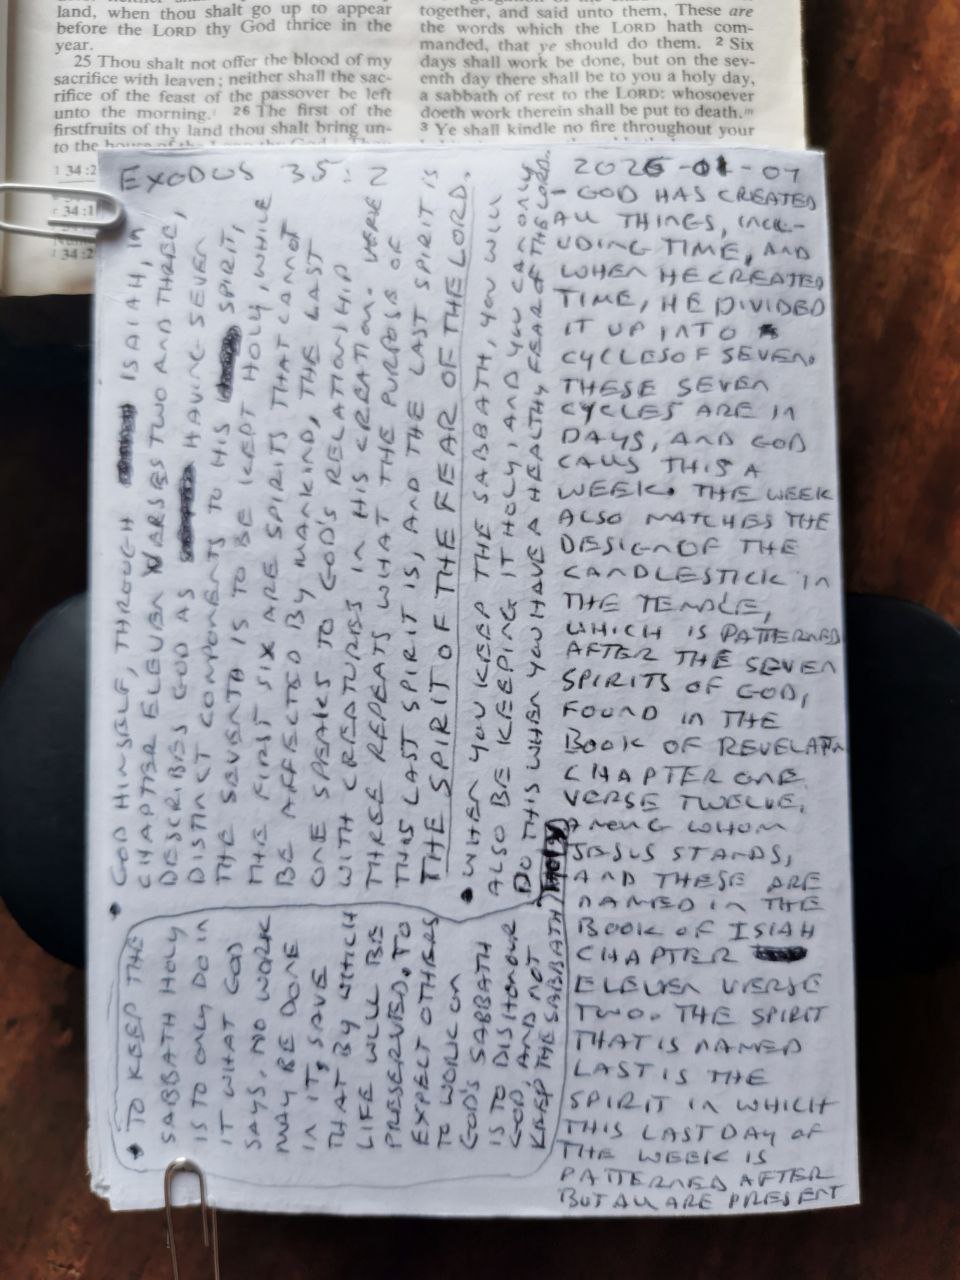 land, when thou shalt go up to appear
before the LORD thy God thrice in the
year.
25 Thou shalt not offer the blood of my
sacrifice with leaven; neither shall the sac-
rifice of the feast of the passover be left
unto the morning. 26 The first of the
firstfruits of thy land thou shalt bring un-
to the house of the
1 34:2
r 34:1
t 34:2
together, and said unto them, These are
the words which the LORD hath com-
manded, that ye should do them. 2 Six
days shall work be done, but on the sev-
enth day there shall be to you a holy day,
a sabbath of rest to the LORD: whosoever
doeth work therein shall be put to death.m
3 Ye shall kindle no fire throughout your
EXODUS 35:2
2026-01-07
- GOD HAS CREATED
ALL THINGS, INCL-
UDING TIME, AND
WHEN HE CREATED
TIME, HE DIVIDED
IT UP INTO
CYCLES OF SEVEN.
THESE SEVEN
CYCLES ARE IN
DAYS, AND GOD
CALLS THIS A
WEEK. THE WEEK
ALSO MATCHES THE
DESIGN OF THE
CANDLESTICK IN
THE TEMPLE,
WHICH IS PATTERNED
AFTER THE SEVEN
SPIRITS OF GOD,
FOUND IN THE
BOOK OF REVELATN
CHAPTER ONE
VERSE TWELVE,
AMONG WHOM
JESUS STANDS,
AND THESE ARE
NAMED IN THE
BOOK OF ISIAH
CHAPTER
ELEVEN VERSE
TWO. THE SPIRIT
THAT IS NAMED
LAST IS THE
SPIRIT IN WHICH
THIS LAST DAY OF
THE WEEK IS
PATTERNED AFTER
BUT ALL ARE PRESENT
• GOD HIMSELF, THROUGH ISAIAH, IN
CHAPTER ELEVEN VERSES TWO AND THREE,
DESCRIBES GOD AS HAVING SEVEN
DISTINCT COMPONENTS TO HIS SPIRIT,
THE SEVENTH IS TO BE KEPT HOLY, WHILE
THE FIRST SIX ARE SPIRITS THAT CANNOT
BE AFFECTED BY MANKIND, THE LAST
ONE SPEAKS TO GOD'S RELATIONSHIP
WITH CREATURES IN HIS CREATION. VERSE
THREE REPEATS WHAT THE PURPOSE OF
THIS LAST SPIRIT IS, AND THE LAST SPIRIT IS
THE SPIRIT OF THE FEAR OF THE LORD.
• WHEN YOU KEEP THE SABBATH, YOU WILL
ALSO BE KEEPING IT HOLY, AND YOU CAN ONLY
DO THIS WHEN YOU HAVE A HEALTHY FEAR OF THE LORD.
• TO KEEP THE
SABBATH HOLY
IS TO ONLY DO IN
IT WHAT GOD
SAYS. NO WORK
MAY BE DONE
IN IT, SAVE
THAT BY WHICH
LIFE WILL BE
PRESERVED. TO
EXPECT OTHERS
TO WORK ON
GOD'S SABBATH
IS TO DISHONOUR
GOD, AND NOT
KEEP THE SABBATH HOLY